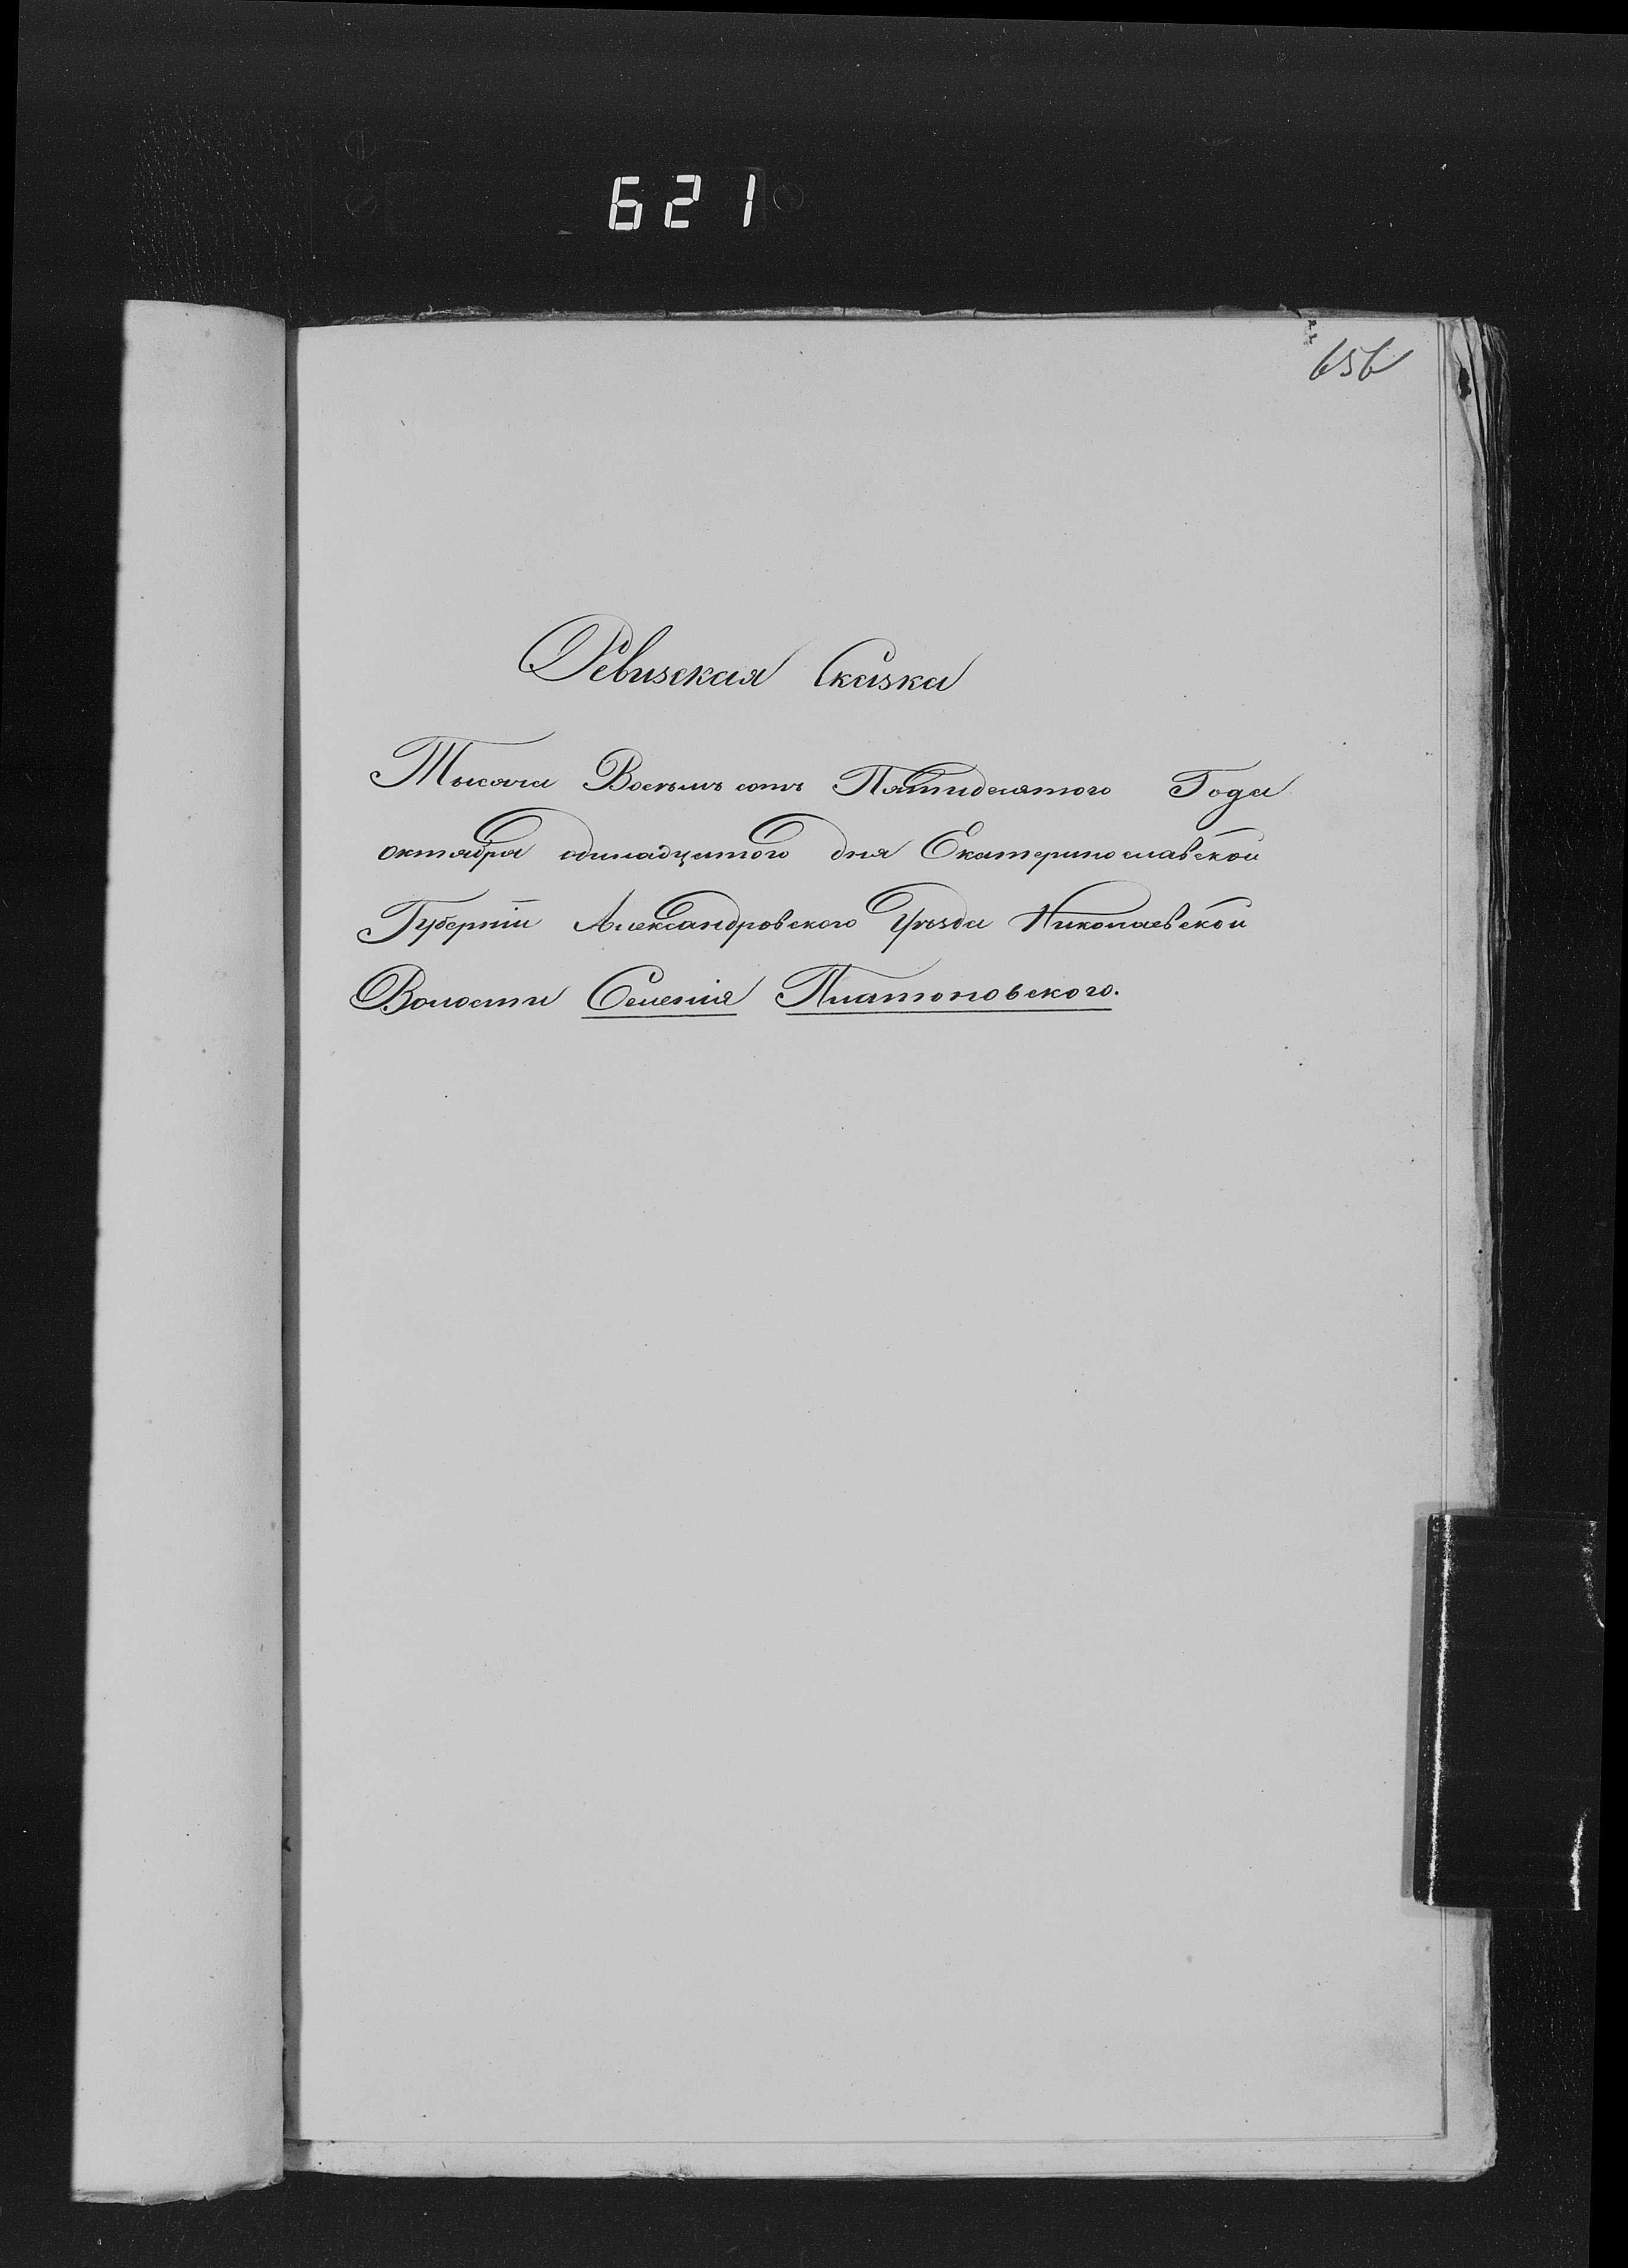 621
656
Ревизская Сказка
Тысяча Восемь сотъ Пятидесятого Года
октября одинадцатого дня Екатеринославской
Губерніи Александровского Уѣзда Николаевской
Волости Селенія Платоновского.